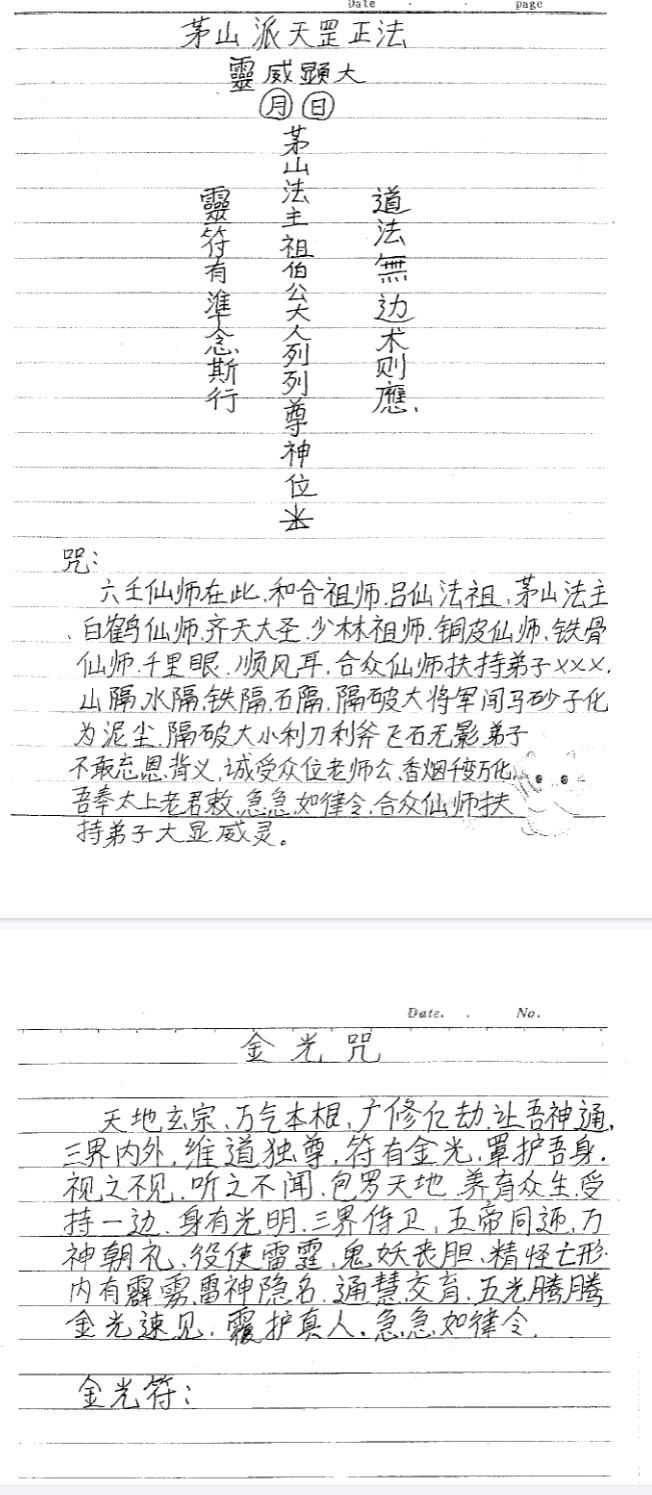 Date
page
茅山派天罡正法
靈威顯大
月 日
道法無边术则應.
茅山法主祖伯公大人列列尊神位
靈符有準念斯行
咒:
六壬仙师在此.和合祖师.吕仙法祖,茅山法主
白鹤仙师.齐天大圣.少林祖师.铜皮仙师、铁骨
仙师.千里眼.顺风耳.合众仙师扶持弟子×××,
山隔.水隔.铁隔.石隔.隔破大将军闾马砂子化
为泥尘.隔破大小利刀利斧飞石无影弟子
不敢忘恩背义,诚受众位老师公、香烟千变万化.
吾奉太上老君敕.急急如律令.合众仙师扶
持弟子大显威灵。
Date.
No.
金光咒
天地玄宗、万气本根,广修亿劫.让吾神通,
三界内外,维道独尊,符有金光,罩护吾身.
视之不见.听之不闻、包罗天地.养育众生,受
持一边.身有光明.三界侍卫,五帝同迊,万
神朝礼、役使雷霆,鬼妖丧胆、精怪亡形.
内有霹雳.雷神隐名.通慧交育.五光腾腾
金光速见,覆护真人.急急如律令.
金光符: